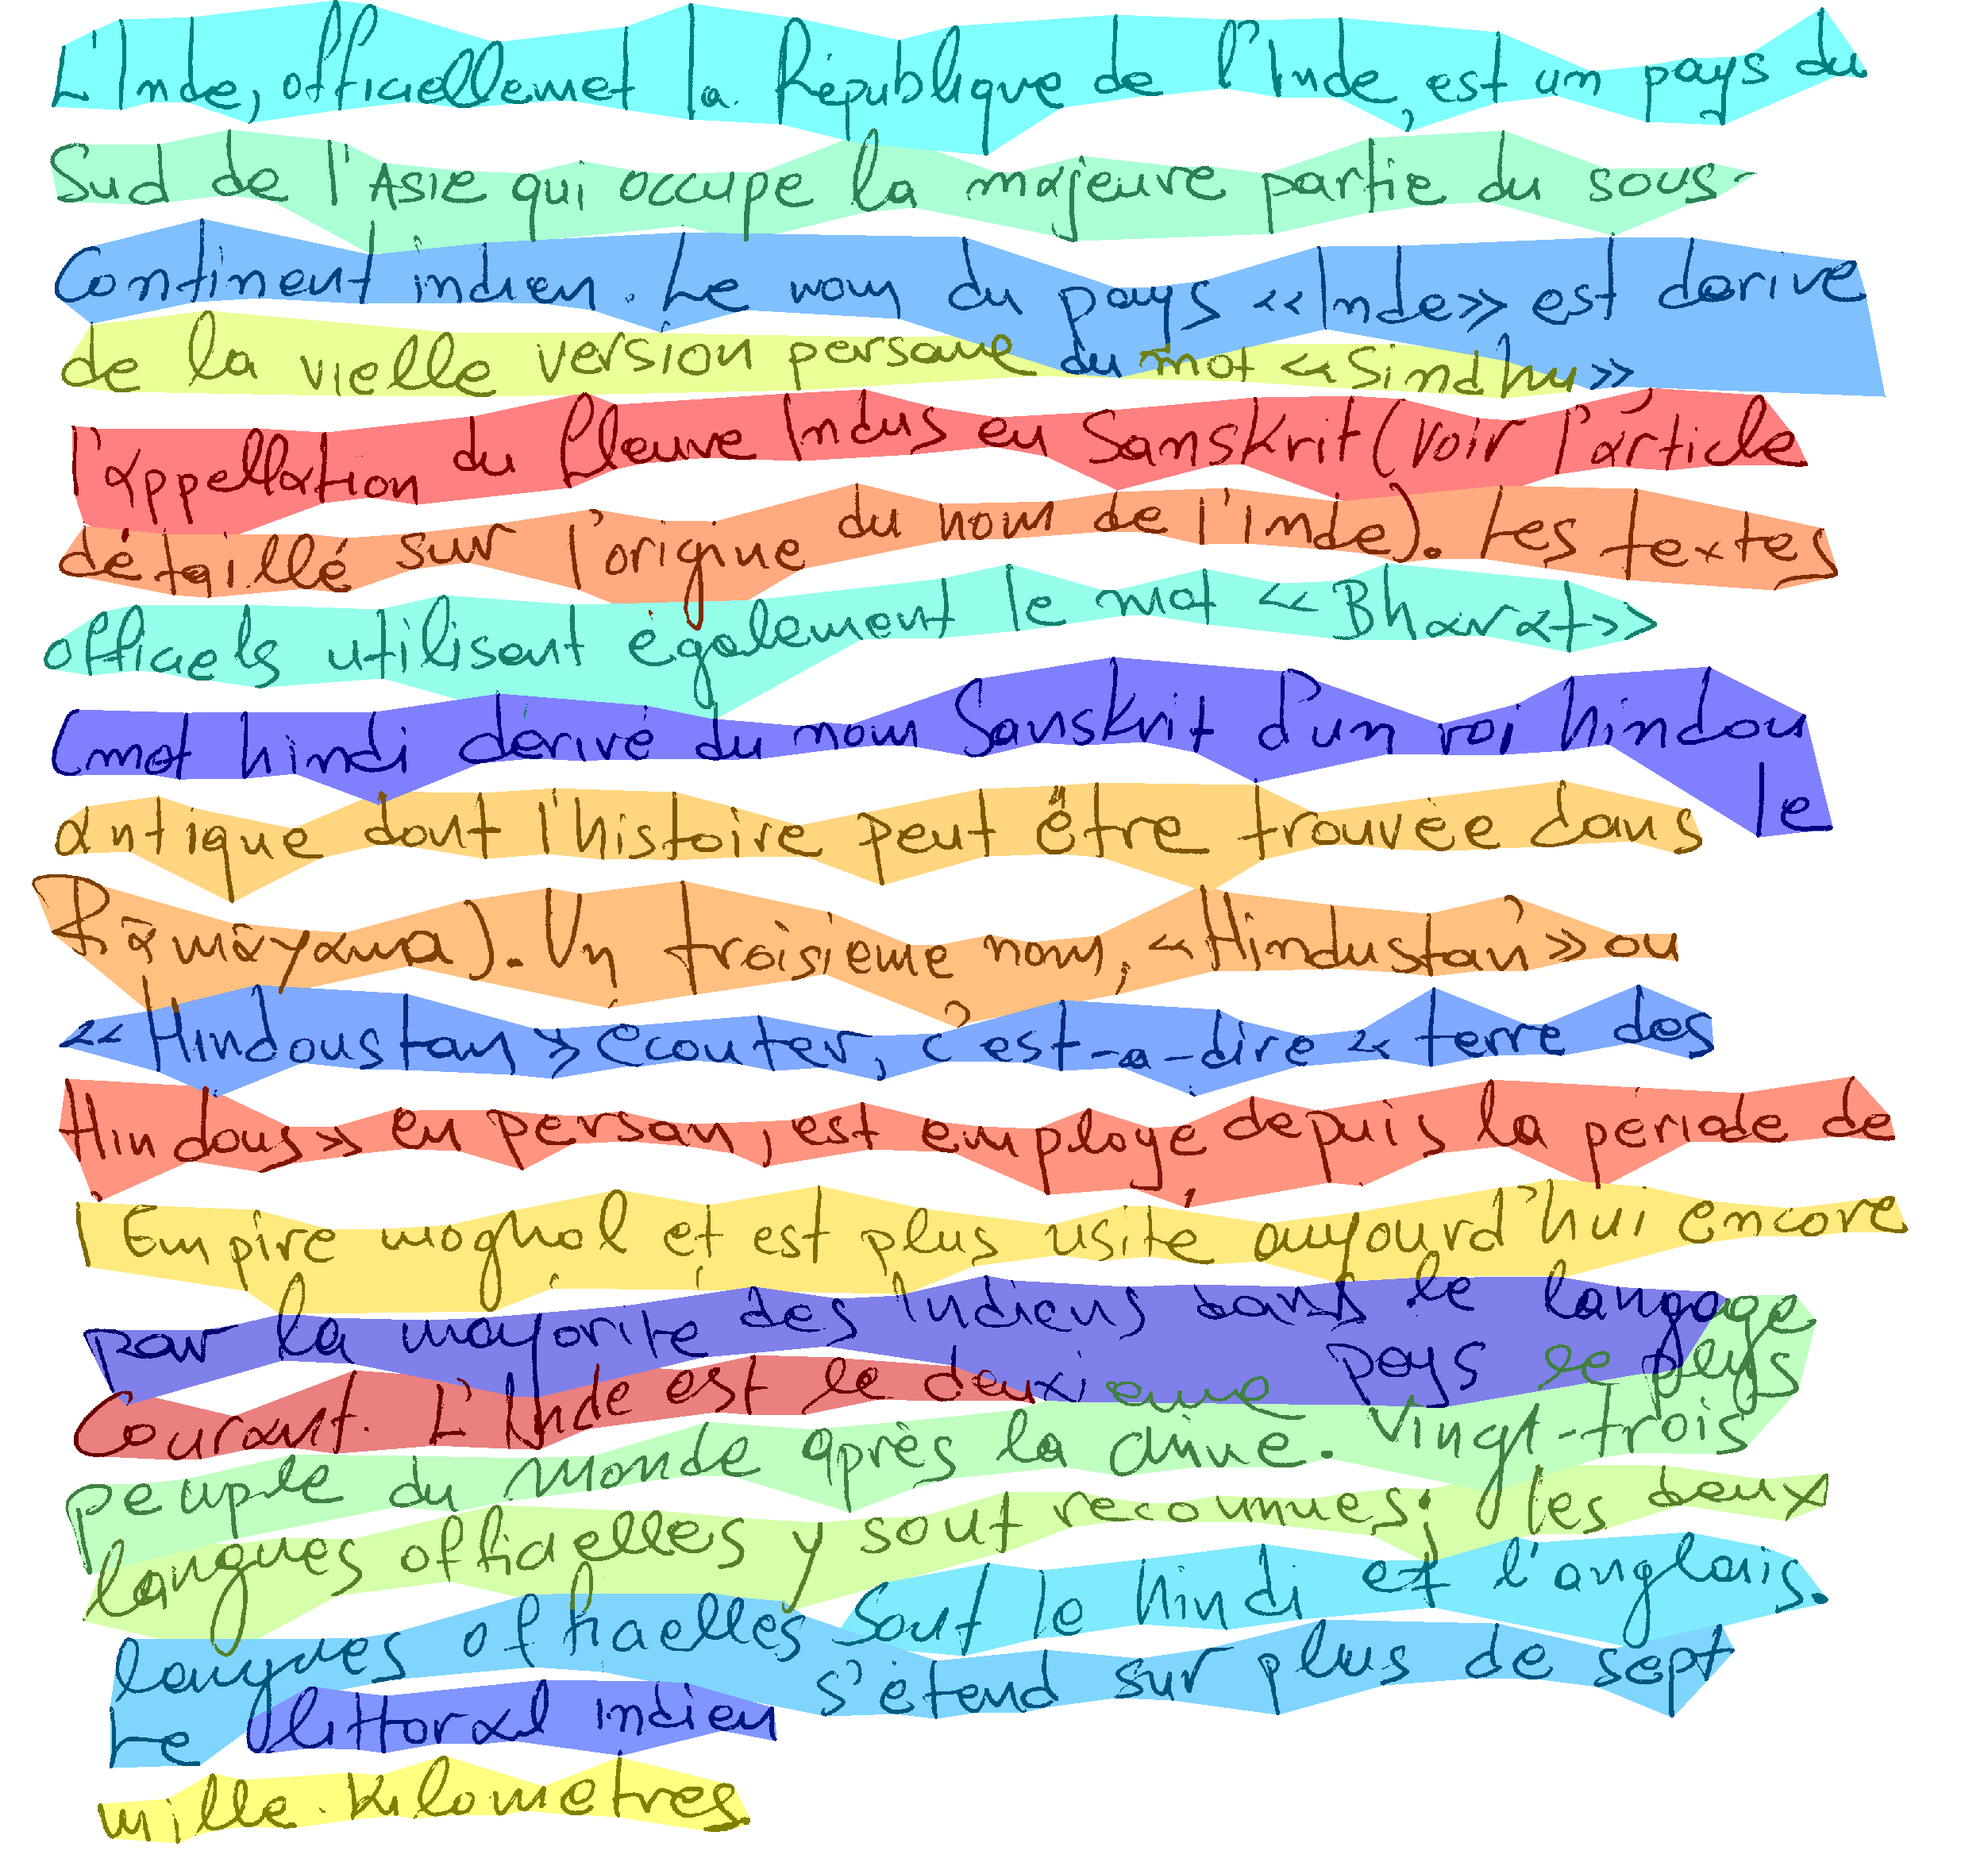 L'Inde, officiellemet la République de l'Inde, est un pays du
Sud de l'Asie qui occupe la majeure partie du sous-
Continent indien. Le nom du pays «Inde» est dérivé
de la vielle version persane du mot «Sindhu»,
l'appellation du fleuve Indus en Sanskrit (voir l'article
détaillé sur l'origine du nom de l'Inde). Les textes
officiels utilisent également le mot «Bharat»
(mot hindi dérivé du nom Sanskrit d'un roi hindou
antique dont l'histoire peut être trouvée dans le
Rāmāyana). Un troisieme nom, «Hindustan» ou
«Hindoustan» écouter, c'est-a-dire «terre des
Hindous» en persan, est employé depuis la période de
l'Empire moghol et est plus usité aujourd'hui encore
par la majorité des Indiens dans le langage
Courant. L'Inde est le deuxieme pays le plus
peuple du monde après la chine. Vingt-trois
langues officielles y sont reconnues; les deux
langues officielles sont le hindi et l'anglais.
Le littoral indien s'étend sur plus de sept
mille kilometres.